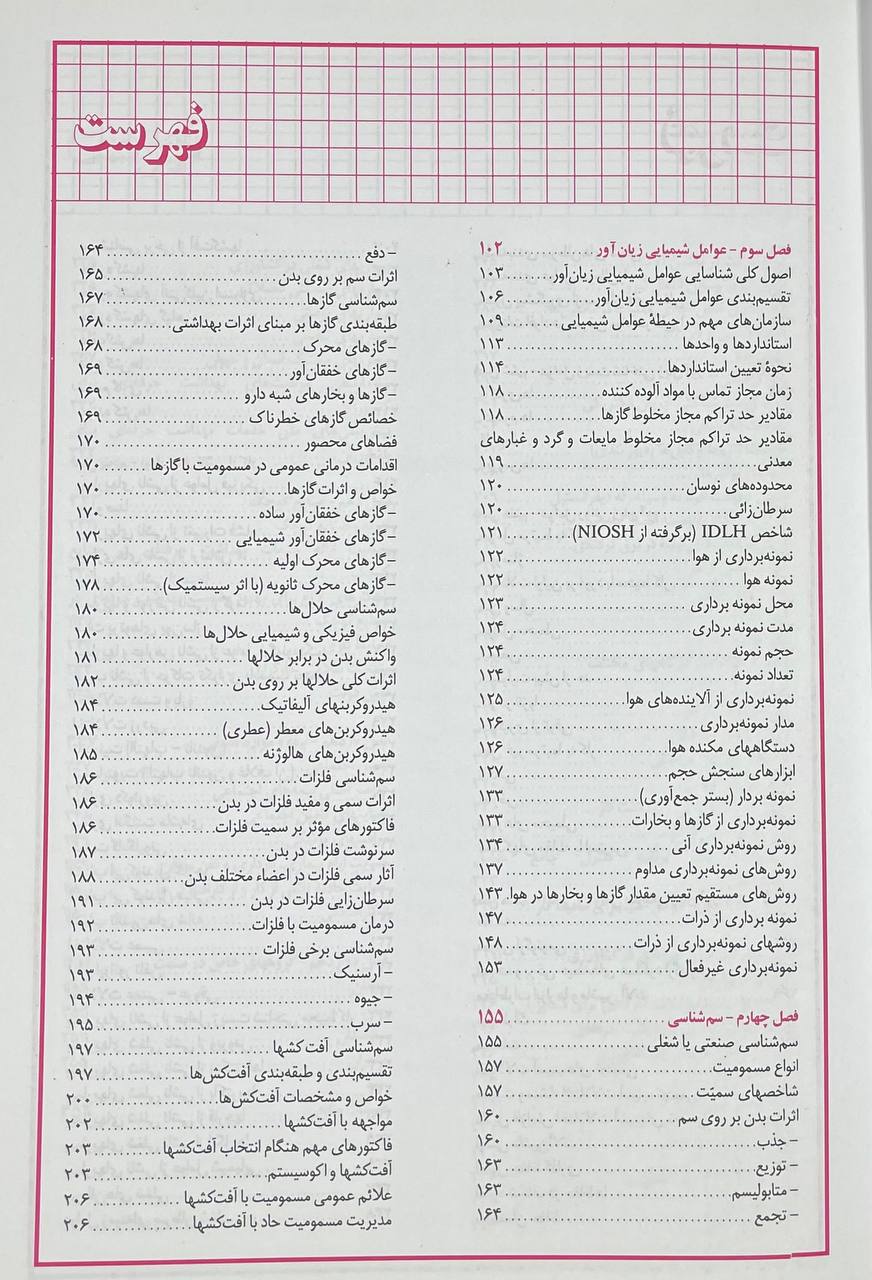 فهرست
فصل سوم - عوامل شیمیایی زیان‌آور ............... ۱۰۲
اصول کلی شناسایی عوامل شیمیایی زیان‌آور ......... ۱۰۳
تقسیم‌بندی عوامل شیمیایی زیان‌آور ............... ۱۰۶
سازمان‌های مهم در حیطهٔ عوامل شیمیایی ......... ۱۰۹
استانداردها و واحدها ............... ۱۱۳
نحوهٔ تعیین استانداردها ............... ۱۱۴
زمان مجاز تماس با مواد آلوده کننده ............... ۱۱۸
مقادیر حد تراکم مجاز مخلوط گازها ............... ۱۱۸
مقادیر حد تراکم مجاز مخلوط مایعات و گرد و غبارهای
معدنی ............... ۱۱۹
محدوده‌های نوسان ............... ۱۲۰
سرطان‌زائی ............... ۱۲۰
شاخص IDLH (برگرفته از NIOSH) ............ ۱۲۱
نمونه‌برداری از هوا ............... ۱۲۲
نمونه هوا ............... ۱۲۲
محل نمونه برداری ............... ۱۲۳
مدت نمونه برداری ............... ۱۲۴
حجم نمونه ............... ۱۲۴
تعداد نمونه ............... ۱۲۴
نمونه‌برداری از آلاینده‌های هوا ............... ۱۲۵
مدار نمونه‌برداری ............... ۱۲۶
دستگاههای مکنده هوا ............... ۱۲۶
ابزارهای سنجش حجم ............... ۱۲۷
نمونه بردار (بستر جمع‌آوری) ............... ۱۳۳
نمونه‌برداری از گازها و بخارات ............... ۱۳۳
روش نمونه‌برداری آنی ............... ۱۳۴
روش‌های نمونه‌برداری مداوم ............... ۱۳۷
روش‌های مستقیم تعیین مقدار گازها و بخارها در هوا . ۱۴۳
نمونه برداری از ذرات ............... ۱۴۷
روشهای نمونه‌برداری از ذرات ............... ۱۴۸
نمونه‌برداری غیرفعال ............... ۱۵۳
فصل چهارم - سم‌شناسی ............... ۱۵۵
سم‌شناسی صنعتی یا شغلی ............... ۱۵۵
انواع مسمومیت ............... ۱۵۷
شاخصهای سمیّت ............... ۱۵۷
اثرات بدن بر روی سم ............... ۱۶۰
- جذب ............... ۱۶۰
- توزیع ............... ۱۶۳
- متابولیسم ............... ۱۶۳
- تجمع ............... ۱۶۴
- دفع ............... ۱۶۴
اثرات سم بر روی بدن ............... ۱۶۵
سم‌شناسی گازها ............... ۱۶۷
طبقه‌بندی گازها بر مبنای اثرات بهداشتی .......... ۱۶۸
- گازهای محرک ............... ۱۶۸
- گازهای خفقان‌آور ............... ۱۶۹
- گازها و بخارهای شبه دارو ............... ۱۶۹
خصائص گازهای خطرناک ............... ۱۶۹
فضاهای محصور ............... ۱۷۰
اقدامات درمانی عمومی در مسمومیت با گازها ....... ۱۷۰
خواص و اثرات گازها ............... ۱۷۰
- گازهای خفقان‌آور ساده ............... ۱۷۰
- گازهای خفقان‌آور شیمیایی ............... ۱۷۲
- گازهای محرک اولیه ............... ۱۷۴
- گازهای محرک ثانویه (با اثر سیستمیک) .......... ۱۷۸
سم‌شناسی حلال‌ها ............... ۱۸۰
خواص فیزیکی و شیمیایی حلال‌ها ............... ۱۸۰
واکنش بدن در برابر حلالها ............... ۱۸۱
اثرات کلی حلالها بر روی بدن ............... ۱۸۲
هیدروکربنهای آلیفاتیک ............... ۱۸۴
هیدروکربن‌های معطر (عطری) ............... ۱۸۴
هیدروکربن‌های هالوژنه ............... ۱۸۵
سم‌شناسی فلزات ............... ۱۸۶
اثرات سمی و مفید فلزات در بدن ............... ۱۸۶
فاکتورهای مؤثر بر سمیت فلزات ............... ۱۸۶
سرنوشت فلزات در بدن ............... ۱۸۷
آثار سمی فلزات در اعضاء مختلف بدن ............... ۱۸۸
سرطان‌زایی فلزات در بدن ............... ۱۹۱
درمان مسمومیت با فلزات ............... ۱۹۲
سم‌شناسی برخی فلزات ............... ۱۹۳
- آرسنیک ............... ۱۹۳
- جیوه ............... ۱۹۴
- سرب ............... ۱۹۵
سم‌شناسی آفت کشها ............... ۱۹۷
تقسیم‌بندی و طبقه‌بندی آفت‌کش‌ها ............... ۱۹۷
خواص و مشخصات آفت‌کش‌ها ............... ۲۰۰
مواجهه با آفت‌کشها ............... ۲۰۲
فاکتورهای مهم هنگام انتخاب آفت‌کشها ............ ۲۰۳
آفت‌کشها و اکوسیستم ............... ۲۰۳
علائم عمومی مسمومیت با آفت‌کشها ............... ۲۰۶
مدیریت مسمومیت حاد با آفت‌کشها ............... ۲۰۶